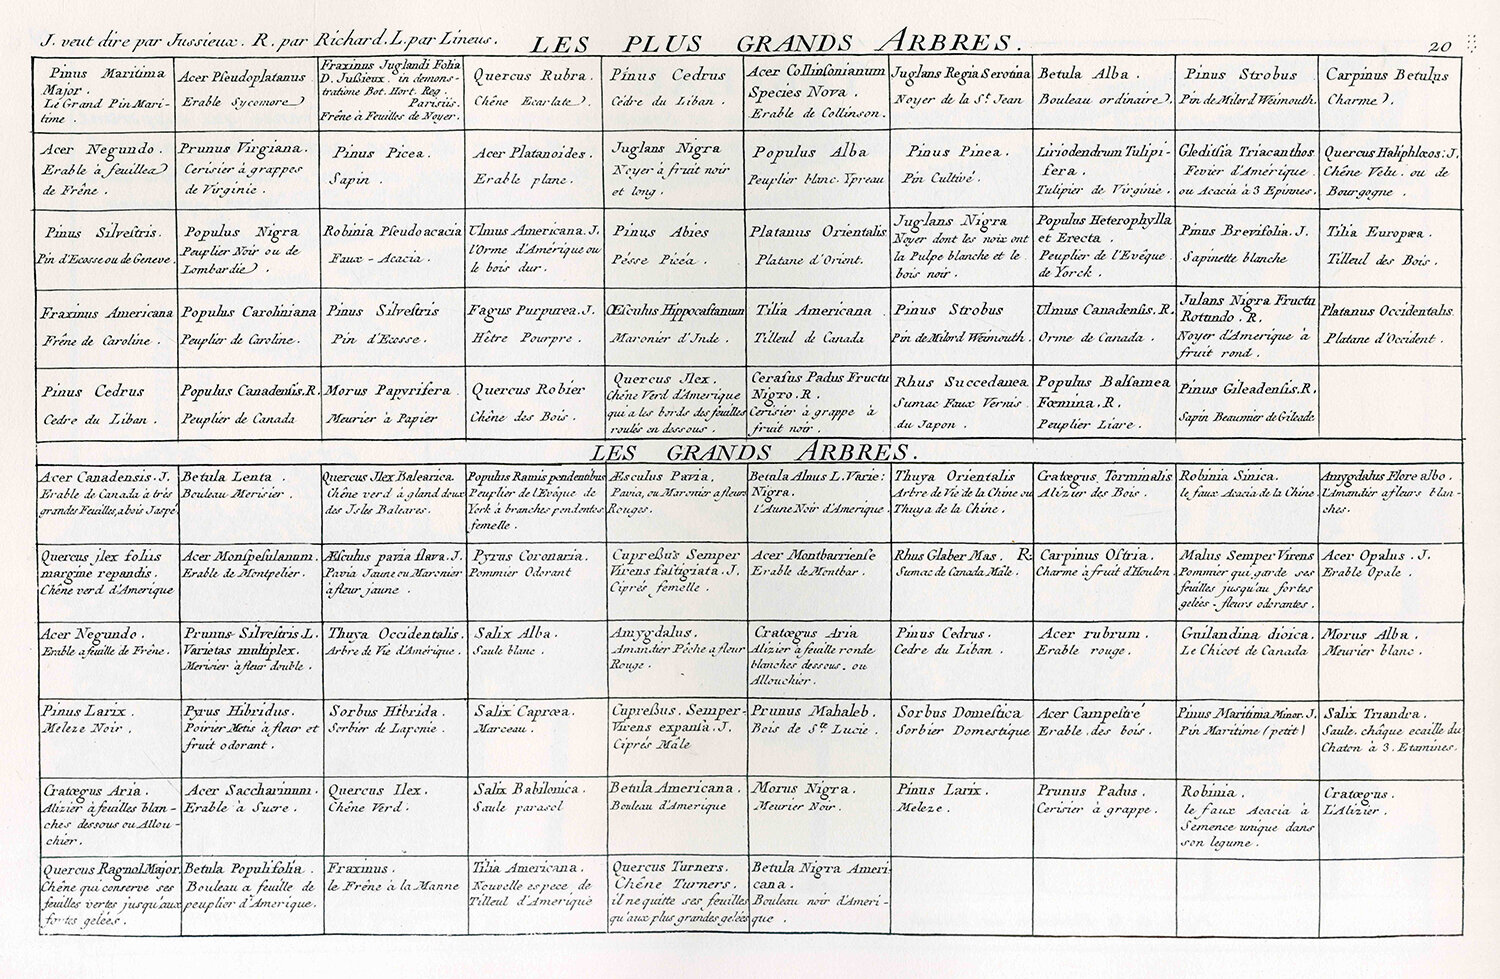 J. veut dire par Jussieux. R. par Richard. L. par Lineus.
LES PLUS GRANDS ARBRES.
20
Pinus Maritima
Major.
Le Grand Pin Mari-
time.
Acer Pseudoplatanus
Erable Sycomore
Fraxinus Juglandi Folia
D. Jussieux. in demons-
tratione Bot. Hort. Reg.
Parisiis.
Frêne à Feuilles de Noyer.
Quercus Rubra.
Chêne Ecarlate.
Pinus Cedrus
Cédre du Liban.
Acer Collinsonianum
Species Nova.
Erable de Collinson.
Juglans Regia Serotina
Noyer de la St. Jean
Betula Alba.
Bouleau ordinaire.
Pinus Strobus
Pin de Milord Weimouth.
Carpinus Betulus
Charme.
Acer Negundo.
Erable à feuilles
de Frêne.
Prunus Virgiana.
Cerisier à grappes
de Virginie.
Pinus Picea.
Sapin.
Acer Platanoides.
Erable plane.
Juglans Nigra
Noyer à fruit noir
et long.
Populus Alba
Peuplier blanc. Ypreau
Pinus Pinea.
Pin Cultivé.
Liriodendrum Tulipi-
fera.
Tulipier de Virginie.
Gleditsia Triacanthos
Fevier d'Amérique.
ou Acacia à 3 Epinnes.
Quercus Haliphlœos: J.
Chêne Velu. ou de
Bourgogne.
Pinus Silvestris.
Pin d'Ecosse ou de Geneve.
Populus Nigra
Peuplier Noir ou de
Lombardie.
Robinia Pseudoacacia
Faux-Acacia.
Ulmus Americana. J.
l'Orme d'Amérique ou
le bois dur.
Pinus Abies
Pésse Picéa.
Platanus Orientalis
Platane d'Orient.
Juglans Nigra
Noyer dont les noix ont
la Pulpe blanche et le
bois noir.
Populus Heterophylla
et Erecta.
Peuplier de l'Evêque
de Yorck.
Pinus Brevifolia. J.
Sapinette blanche
Tilia Europæa.
Tilleul des Bois.
Fraxinus Americana
Frêne de Caroline.
Populus Caroliniana
Peuplier de Caroline.
Pinus Silvestris
Pin d'Ecosse.
Fagus Purpurea. J.
Hêtre Pourpre.
Œsculus Hippocastanum
Maronier d'Inde.
Tilia Americana
Tilleul de Canada
Pinus Strobus
Pin de Milord Weimouth.
Ulmus Canadensis. R.
Orme de Canada.
Julans Nigra Fructu
Rotundo. R.
Noyer d'Amerique à
fruit rond.
Platanus Occidentalis
Platane d'Occident.
Pinus Cedrus
Cedre du Liban.
Populus Canadensis. R.
Peuplier de Canada
Morus Papyrifera
Meurier à Papier
Quercus Robier
Chêne des Bois.
Quercus Jlex.
Chêne Verd d'Amerique
qui a les bords des feuilles
roulés en dessous.
Cerasus Padus Fructu
Nigro. R.
Cerisier à grappe à
fruit noir.
Rhus Succedanea
Sumac Faux Vernis
du Japon.
Populus Balsamea
Fœmina. R.
Peuplier Liare.
Pinus Gileadensis. R.
Sapin Beaumier de Gileade
LES GRANDS ARBRES.
Acer Canadensis. J.
Erable de Canada à très
grandes Feuilles, a bois Jaspé
Betula Lenta.
Bouleau Merisier.
Quercus Jlex Balearica.
Chêne verd à gland doux
des Isles Baleares.
Populus Ramis pendentibus
Peuplier de l'Evêque de
York à branches pendentes
femelle.
Æsculus Pavia.
Pavia, ou Maronier a fleurs
Rouges.
Betula Alnus L. Varie:
Nigra.
l'Aune Noir d'Amerique.
Thuya Orientalis
Arbre de Vie de la Chine ou
Thuya de la Chine.
Cratœgus Torminalis
Alizier des Bois.
Robinia Sinica.
le faux Acacia de la Chine
Amygdalus Flore albo.
l'Amandier a fleurs blan-
ches.
Quercus jlex foliis
margine repandis.
Chêne verd d'Amerique
Acer Monspesulanum.
Erable de Montpelier.
Æsculus pavia flava. J.
Pavia Jaune ou Maronier
à fleur jaune.
Pyrus Coronaria.
Pommier Odorant
Cupressus Semper
Virens fastigiata. J.
Ciprés femelle.
Acer Montbarriense
Erable de Montbar.
Rhus Glaber Mas. R:
Sumac de Canada Mâle.
Carpinus Ostria.
Charme à fruit d'Houlon.
Malus Semper Virens
Pommier qui garde ses
feuilles jusqu'au fortes
gelées. fleurs odorantes.
Acer Opalus. J.
Erable Opale.
Acer Negundo.
Erable a feuille de Frêne.
Prunus Silvestris. L.
Varietas multiplex.
Merisier à fleur double.
Thuya Occidentalis.
Arbre de Vie d'Amérique.
Salix Alba.
Saule blanc.
Amygdalus.
Amandier Pêche a fleur
Rouge.
Cratœgus Aria
Alizier à feuille ronde
blanches dessous. ou
Allouchier.
Pinus Cedrus.
Cedre du Liban.
Acer rubrum.
Erable rouge.
Guilandina dioica.
Le Chicot de Canada
Morus Alba.
Meurier blanc.
Pinus Larix.
Meleze Noir.
Pyrus Hibridus.
Poirier Metis à fleur et
fruit odorant.
Sorbus Hibrida.
Sorbier de Laponie.
Salix Caprœa.
Marceau.
Cupressus. Semper-
Virens expansa. J.
Ciprés Mâle
Prunus Mahaleb.
Bois de Ste. Lucie.
Sorbus Domestica
Sorbier Domestique
Acer Campestré
Erable des bois.
Pinus Maritima Minor. J.
Pin Maritime (petit)
Salix Triandra.
Saule, châque ecaille du
Chaton à 3. Etamines.
Cratœgus Aria.
Alizier à feuilles blan-
ches dessous ou Allou-
chier.
Acer Saccharinum.
Erable à Sucre.
Quercus Ilex.
Chêne Verd.
Salix Babilonica.
Saule parasol
Betula Americana.
Bouleau d'Amerique
Morus Nigra.
Meurier Noir.
Pinus Larix.
Meleze.
Prunus Padus.
Cerisier à grappe.
Robinia.
le faux Acacia à
Semence unique dans
son legume.
Cratœgus.
L'Alizier.
Quercus Ragnol Major.
Chêne qui conserve ses
feuilles vertes jusqu'aux
fortes gelées.
Betula Populifolia.
Bouleau a feuille de
peuplier d'Amerique.
Fraxinus.
le Frêne à la Manne
Tilia Americana.
Nouvelle espece de
Tilleul d'Amerique
Quercus Turners.
Chêne Turners.
il ne quitte ses feuilles
qu'aux plus grandes gelées
Betula Nigra Ameri-
cana.
Bouleau noir d'Ameri-
que.